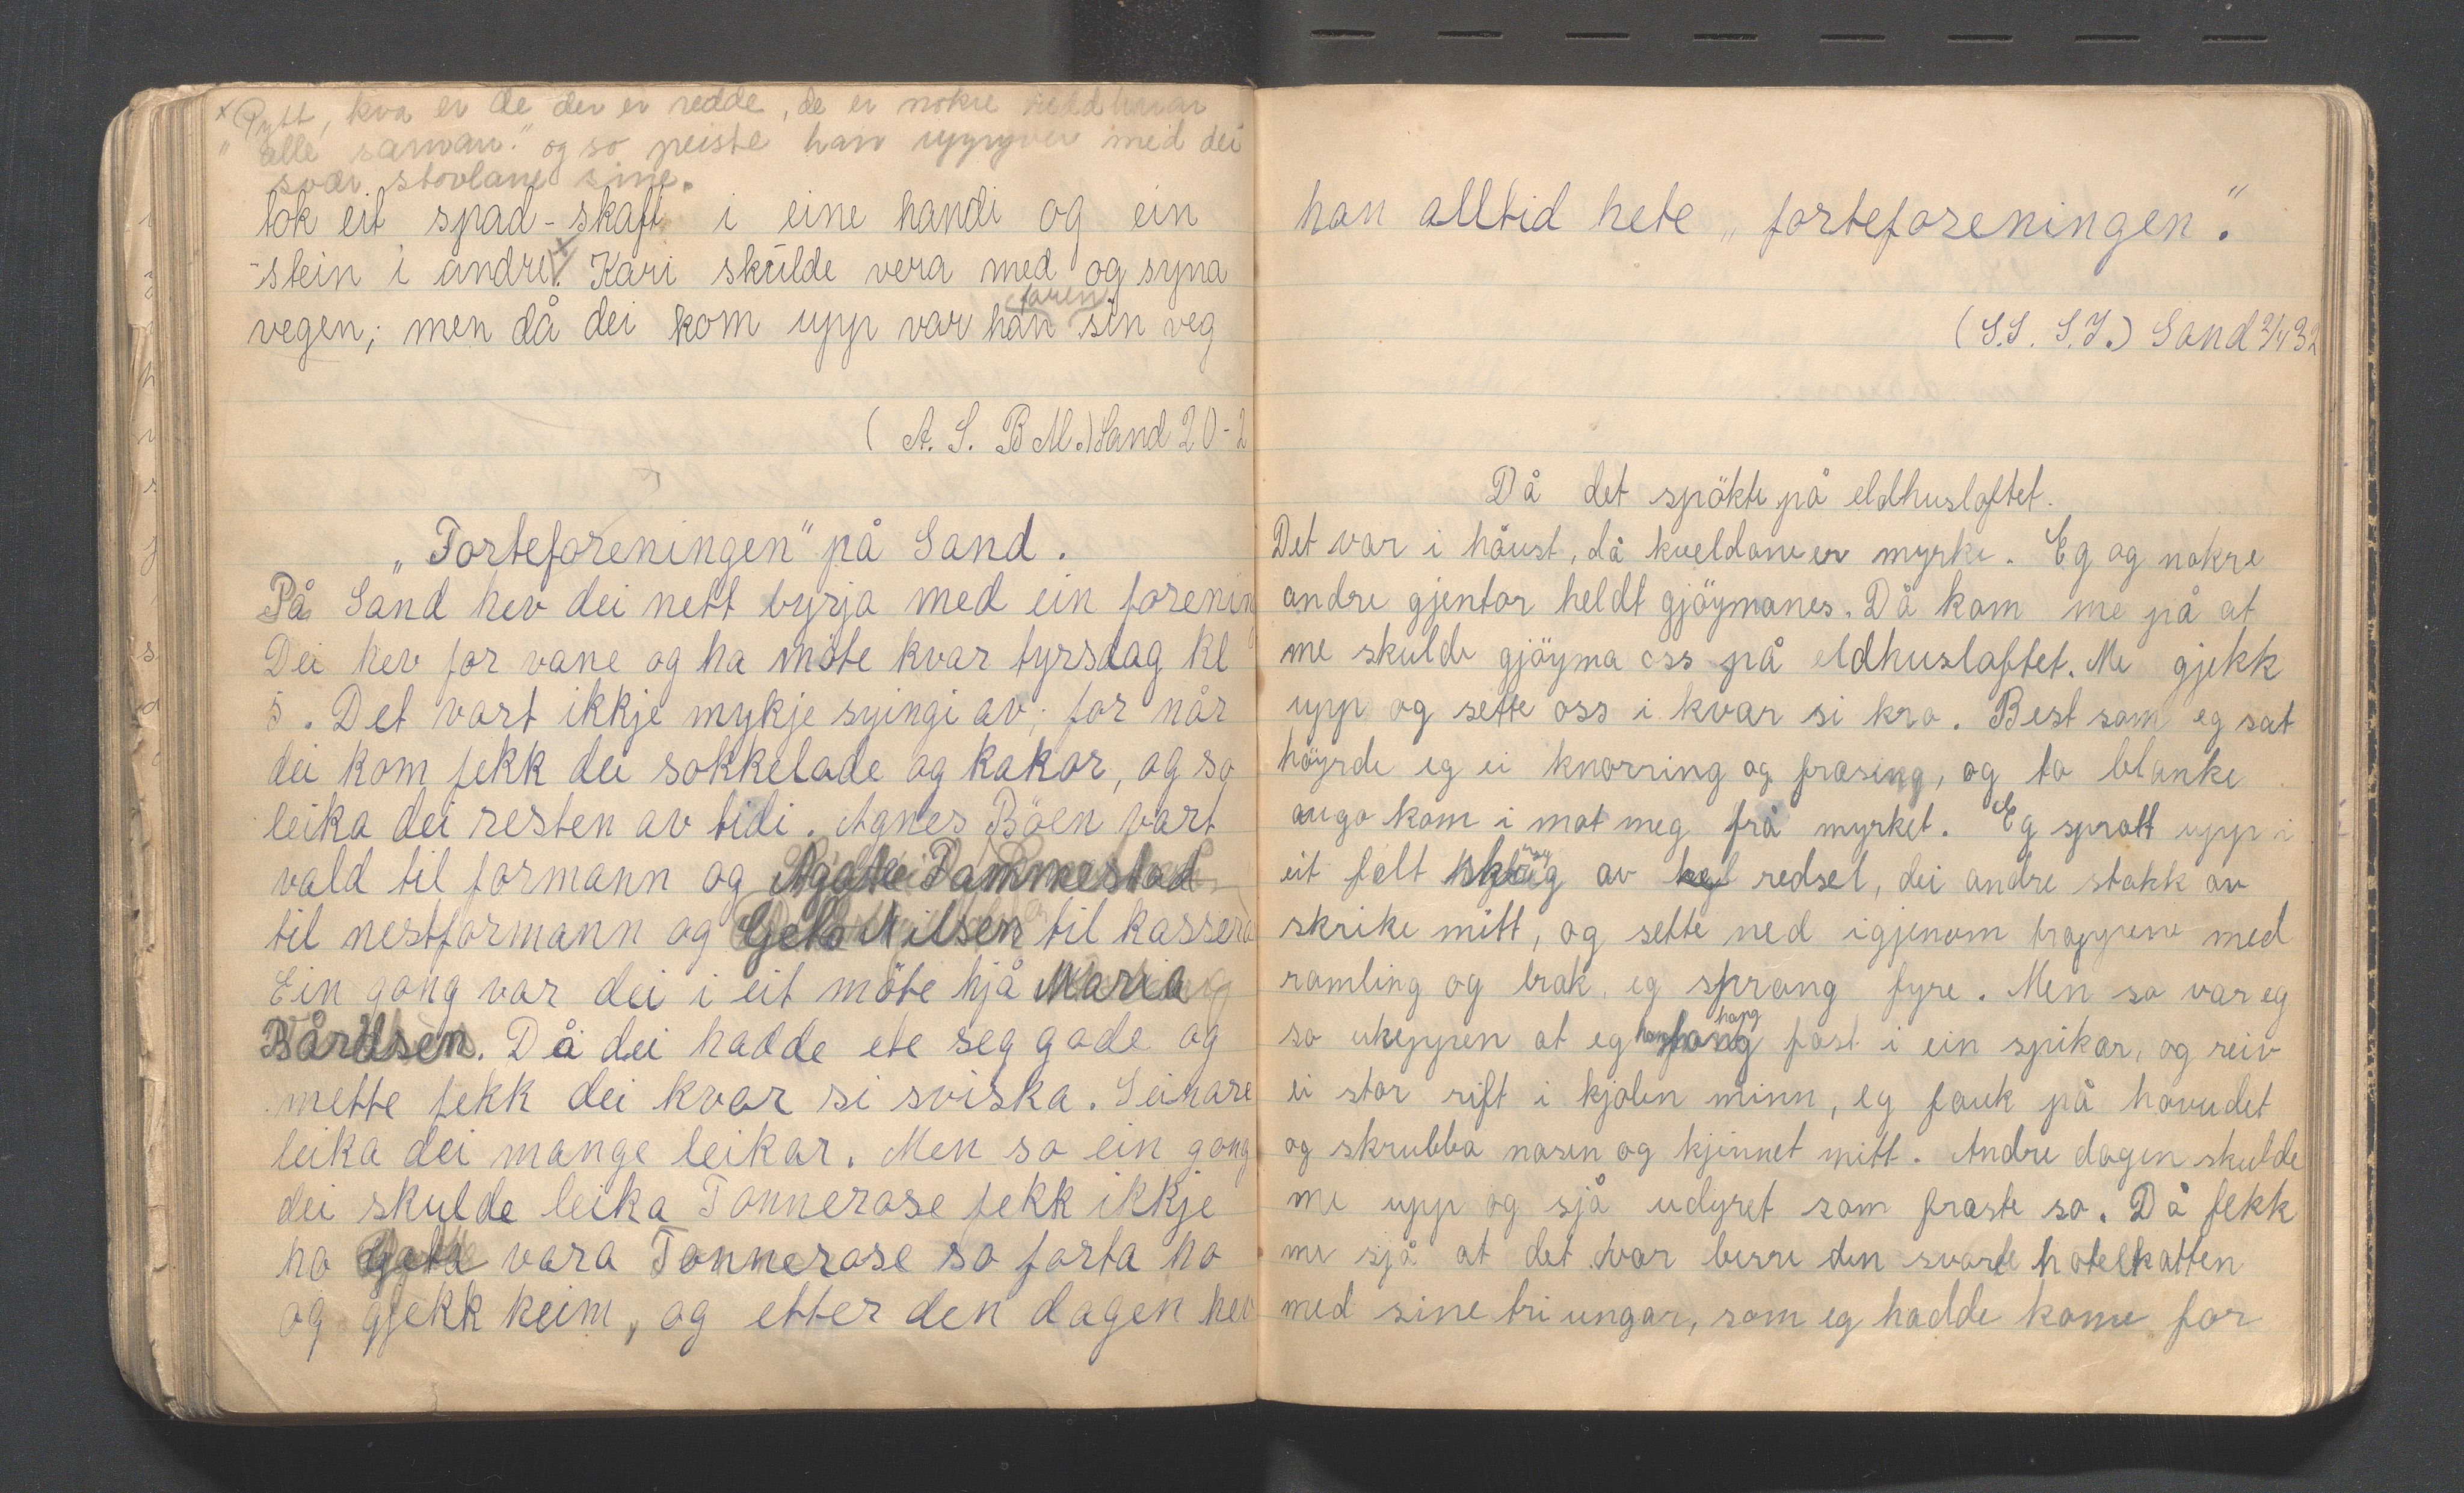 x Pytt, kva er de der er redde, de er nokre reddharar
" alle saman." og so peiste han uppyver med dei
svær stovlane sine.
tok eit spad-skaft i eine handi og ein
stein i andre. x Kari skulde vera med og syna
vegen; men då dei kom upp var han faren sin veg
( A. S. B M.) Sand 20-2
„Forteforeningen" på Sand.
På Sand hev dei nett byrja med ein forening
Dei hev for vane og ha möte kvar tyrsdag kl
5. Det vart ikkje mykje syingi av; for når
dei kom fekk dei sokkelade og kakor, og so
leika dei resten av tidi. Agnes Böen vart
vald til formann og Agate Tammestad
til nestformann og Geta Nilsen til kassera
Ein gong var dei i eit möte hjå Maria
Bårdsen. Då dei hadde ete seg gode og
mette fekk dei kvar si sviska. Seinare
leika dei mange leikar. Men so ein gong
dei skulde leika Tonnerose fekk ikkje
ho Geta vara Tonnerose so forta ho
og gjekk heim, og etter den dagen hev
han alltid hete „forteforeningen".
(S.S. S.J.) Sand 2/4 32
Då det spökte på eldhusloftet.
Det var i håust, då kveldane er myrke. Eg og nokre
andre gjentor heldt gjöymanes. Då kom me på at
me skulde gjöyma oss på eldhusloftet. Me gjekk
upp og sette oss i kvar si kro. Best som eg sat
höyrde eg ei knorring og frasing, og to blanke
augo kom i mot meg frå myrket. Eg spratt upp i
eit fælt av redsel, dei andre stakk av
skrike mitt, og sette ned igjenom trappene med
ramling og brak, eg sprang fyre. Men so var eg
so uheppen at eg hang fast i ein spikar, og reiv
ei stor rift i kjolen minn, eg fauk på hovudet
og skrubba nasen og kjinnet mitt. Andre dagen skulde
me upp og sjå udyret som fraste so. Då fekk
me sjå at det var berre den svarte hotelkatten
med sine tri ungar, som eg hadde kome for